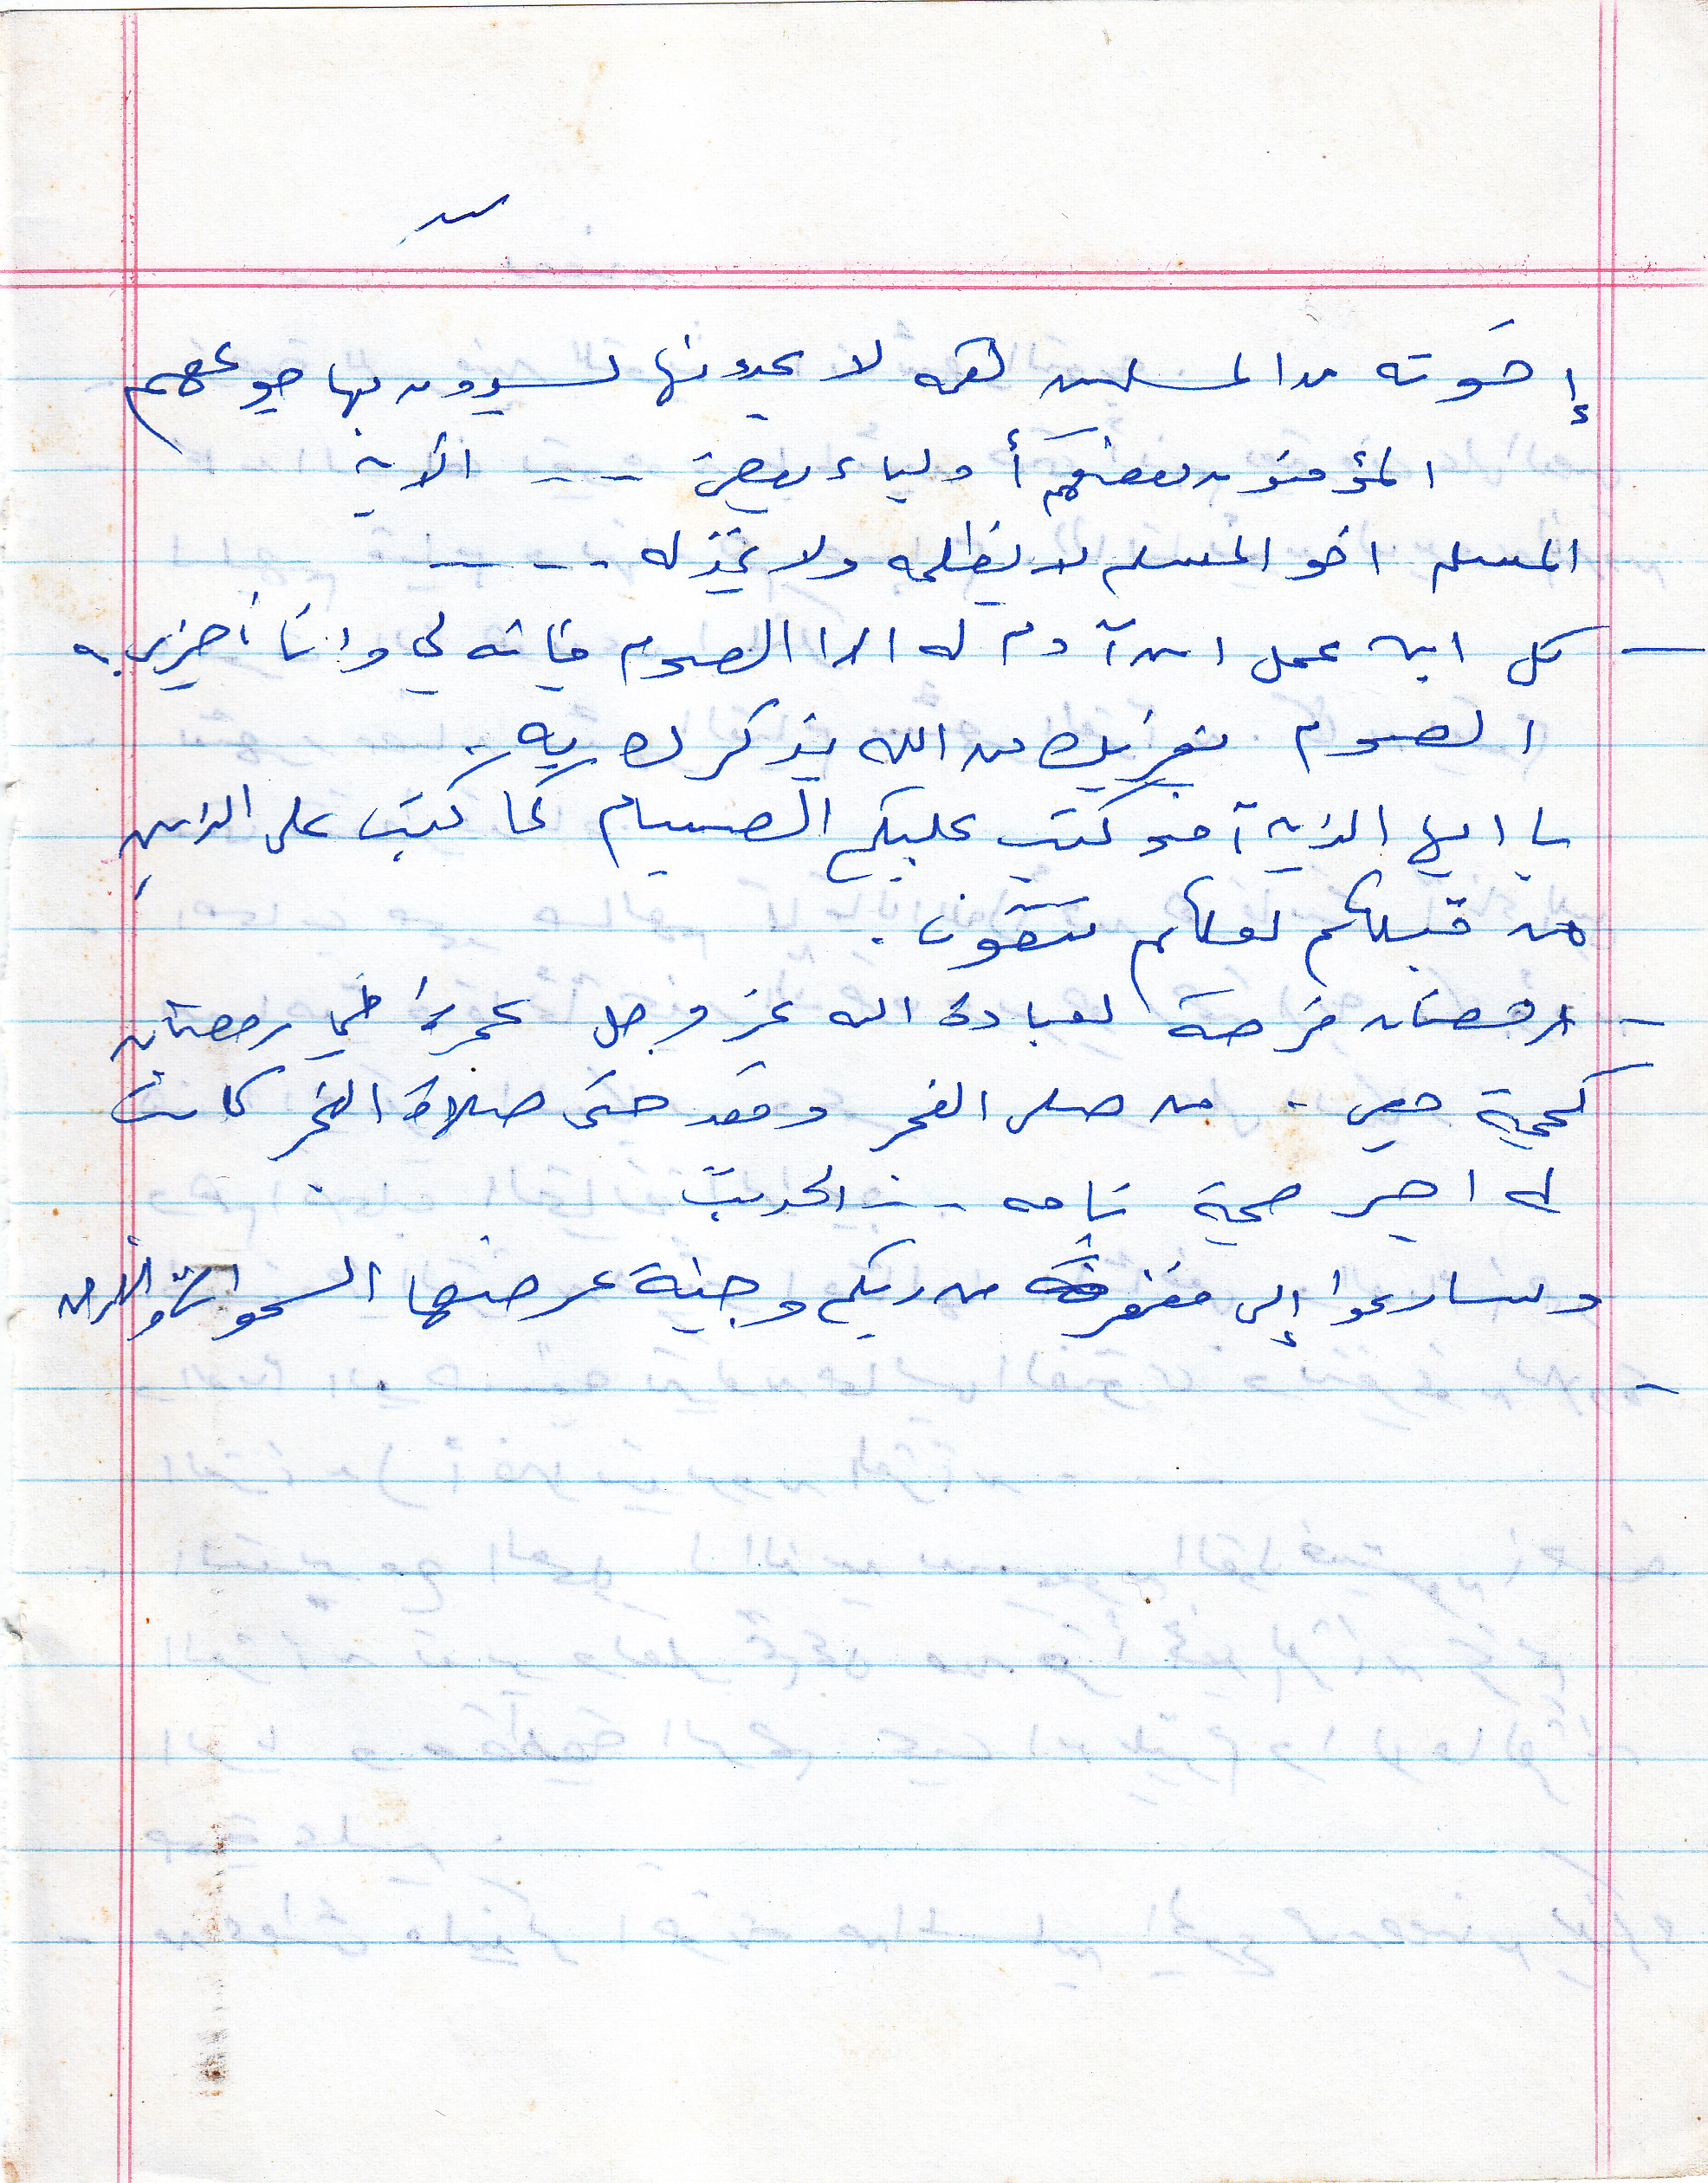 إخوته من المسلمين لقمه لا يجدونها ليسدون بها جوعهم
المؤمنون بعضهم أولياء بعض --- الآية
المسلم اخو المسلم لا يظلمه ولا يخذله ----
— كل ابن عمل ابن آدم له الا الصوم فانه لي وانا أجزي به
الصوم من الله
يا ايها الذين آمنو كتب عليكم الصيام كما كتب على الذين
من قبلكم لعلكم تتقون .
- رمضان فرصة لعبادة الله عز وجل عمرة في رمضان
كحجة معي .. من صلى الفجر وقعد حتى صلاة الفجر كانت
له اجر حجة تامه --- الحديث
وسارعوا إلى مغفرة من ربكم وجنة عرضها السموات والارض
-